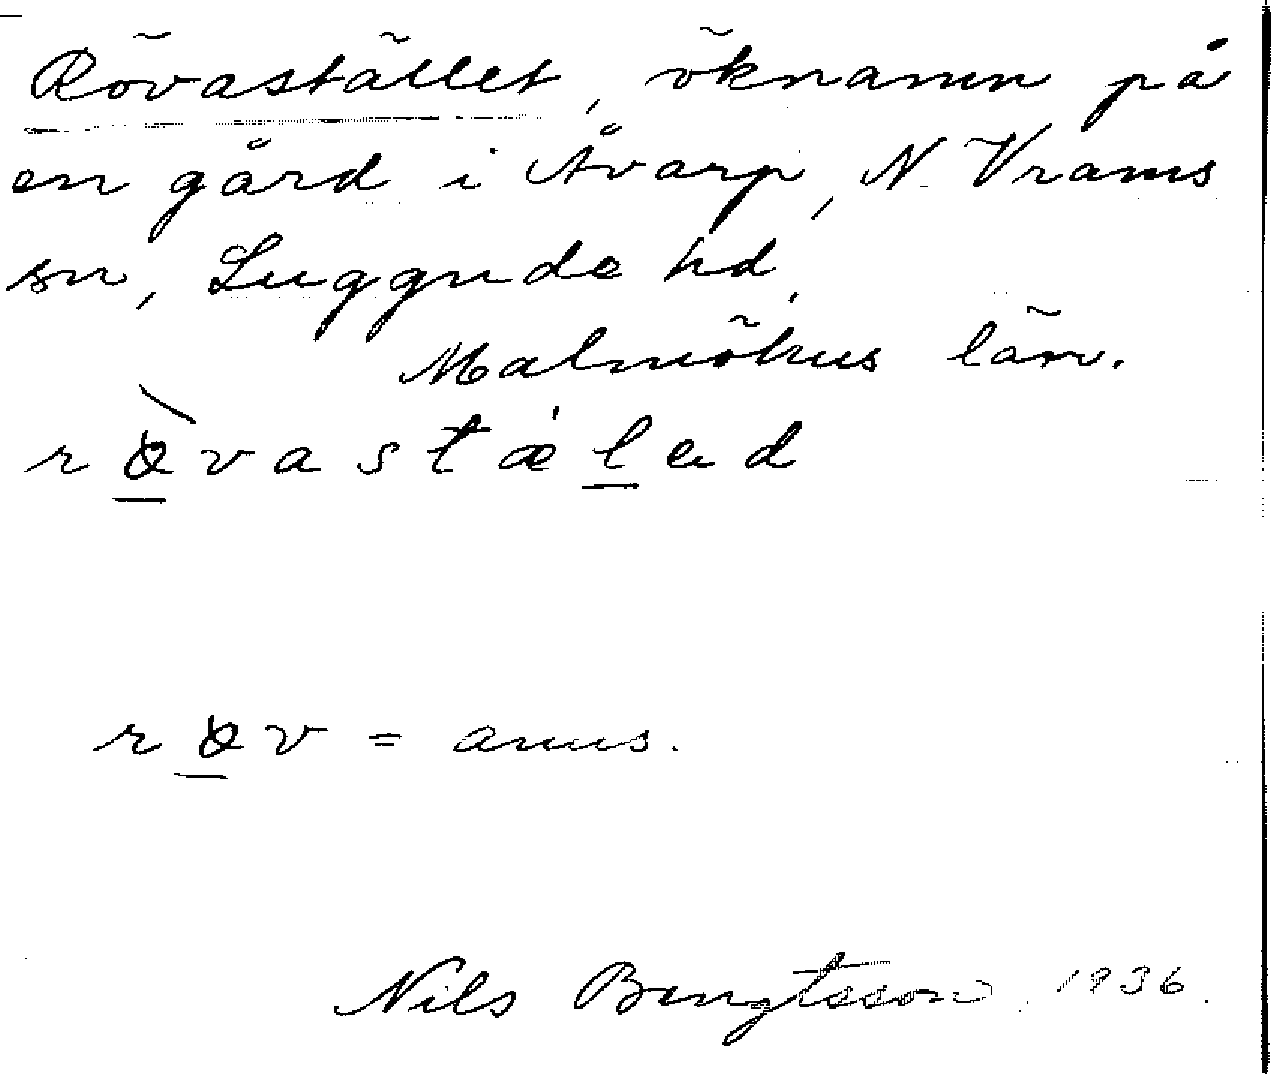 Rövastället, öknamn på
en gård i Åvarp, N. Vrams
sn, Luggude hd,
Malmöhus län.
rø̀vastæ'led
røv = anus.
Nils Bengtsson, 1936.